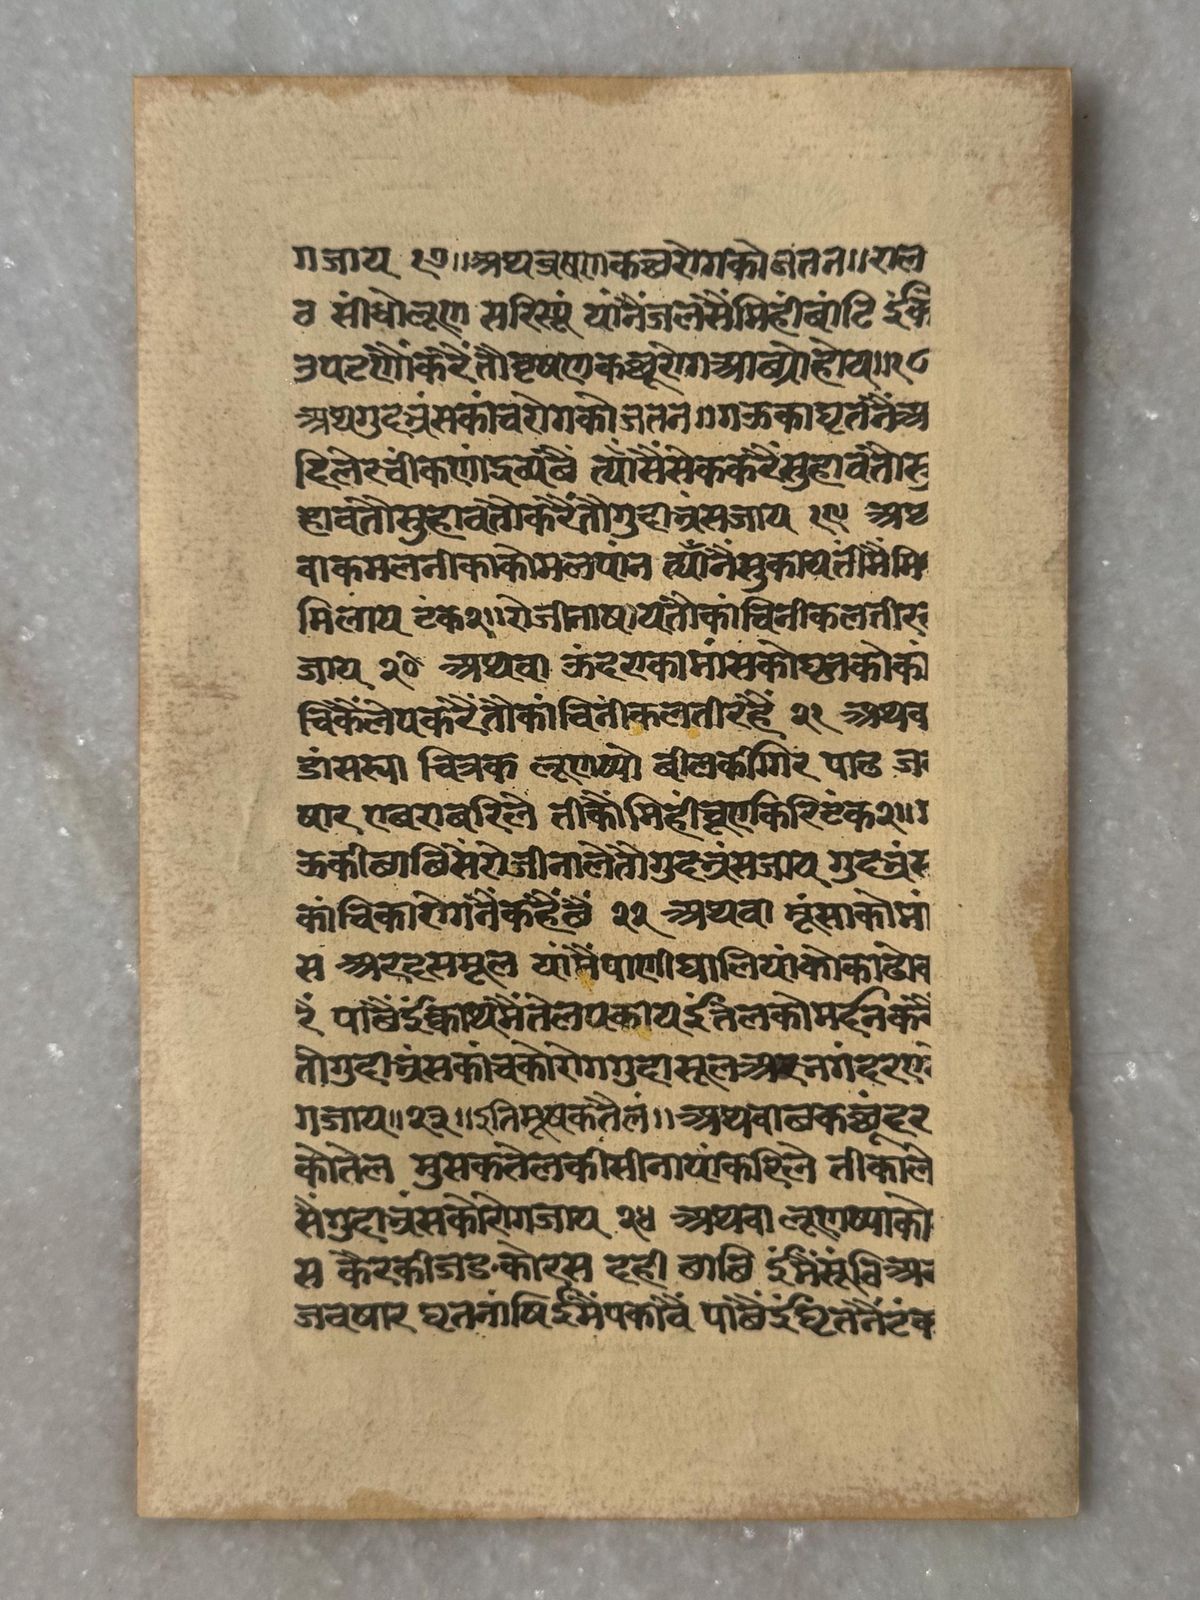 गजाय १७॥अथव्रषणकछरोगकोजतन॥राल
व सींधोलूण सरिस्यूं यांनैंजलसैंमिहींबांटि ईंकि
उपटणौंकरैंतौवृषणकछूरोगआछ्योहोय॥१८
अथगुदभ्रंसकांचरोगकौजतन॥गऊकाघृतनैंअ
हावैतौसुहावतौकरैंतौगुदाभ्रंसजाय १९ अथ
वाकमलनीकाकोमलपांन त्यांनैंसुकायतींमैंमि
मिलाय टंक२॥रोजीनाषायतौकांचिनीकलतीर
जाय २० अथवा ऊंदराकामांसकोघृतकोकां
चिकैंलेपकरैंतौकांचिनींकलतीरहैं २१ अथव
डांसस्या चित्रक लूणष्यो बीलकीगिर पाठ ज
षार एबराबरिले तींकौंमिहींचूणकिरिटंक२॥
ऊकीछाछिसंरोजीनालेतौगुदभ्रंसजाय गुदभ्रंस
कांचिकारोगनैंकहैंछैं २२ अथवा मूंसाकोमां
स अरदसमूल यांमैंपाणीघालियांकोकाढोक
रैं पाछैंईंक्वाथमैंतेलपकायईंतेलकौमर्दनकरैं
तौगुदाभ्रंसकांचकोरोगगुदासूलअरभगंदरए
गजाय॥२३॥इतिमूषकतैलं॥अथवाछकछूंदर
कोतेल मुसकतेलकीसीनायांकरिले तींकाले
सैंगुदाभ्रंसकोरोगजाय २४ अथवा लूणष्याको
स कैरकीजडकोरस दही छाछि ईंमैंसूंठिअ
जवषार घृतनांषिईंमैंपकांवैं पाछैंईंघृतनैंटंक